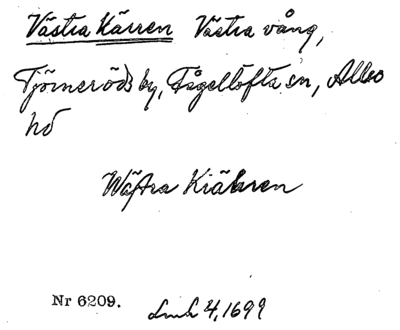 Västra Kärren Västra vång,
Tjörneröds by, Fågeltofta sn, Albo
hd
Wästra Kiäkren
Nr 6209. Lmk 4, 1699